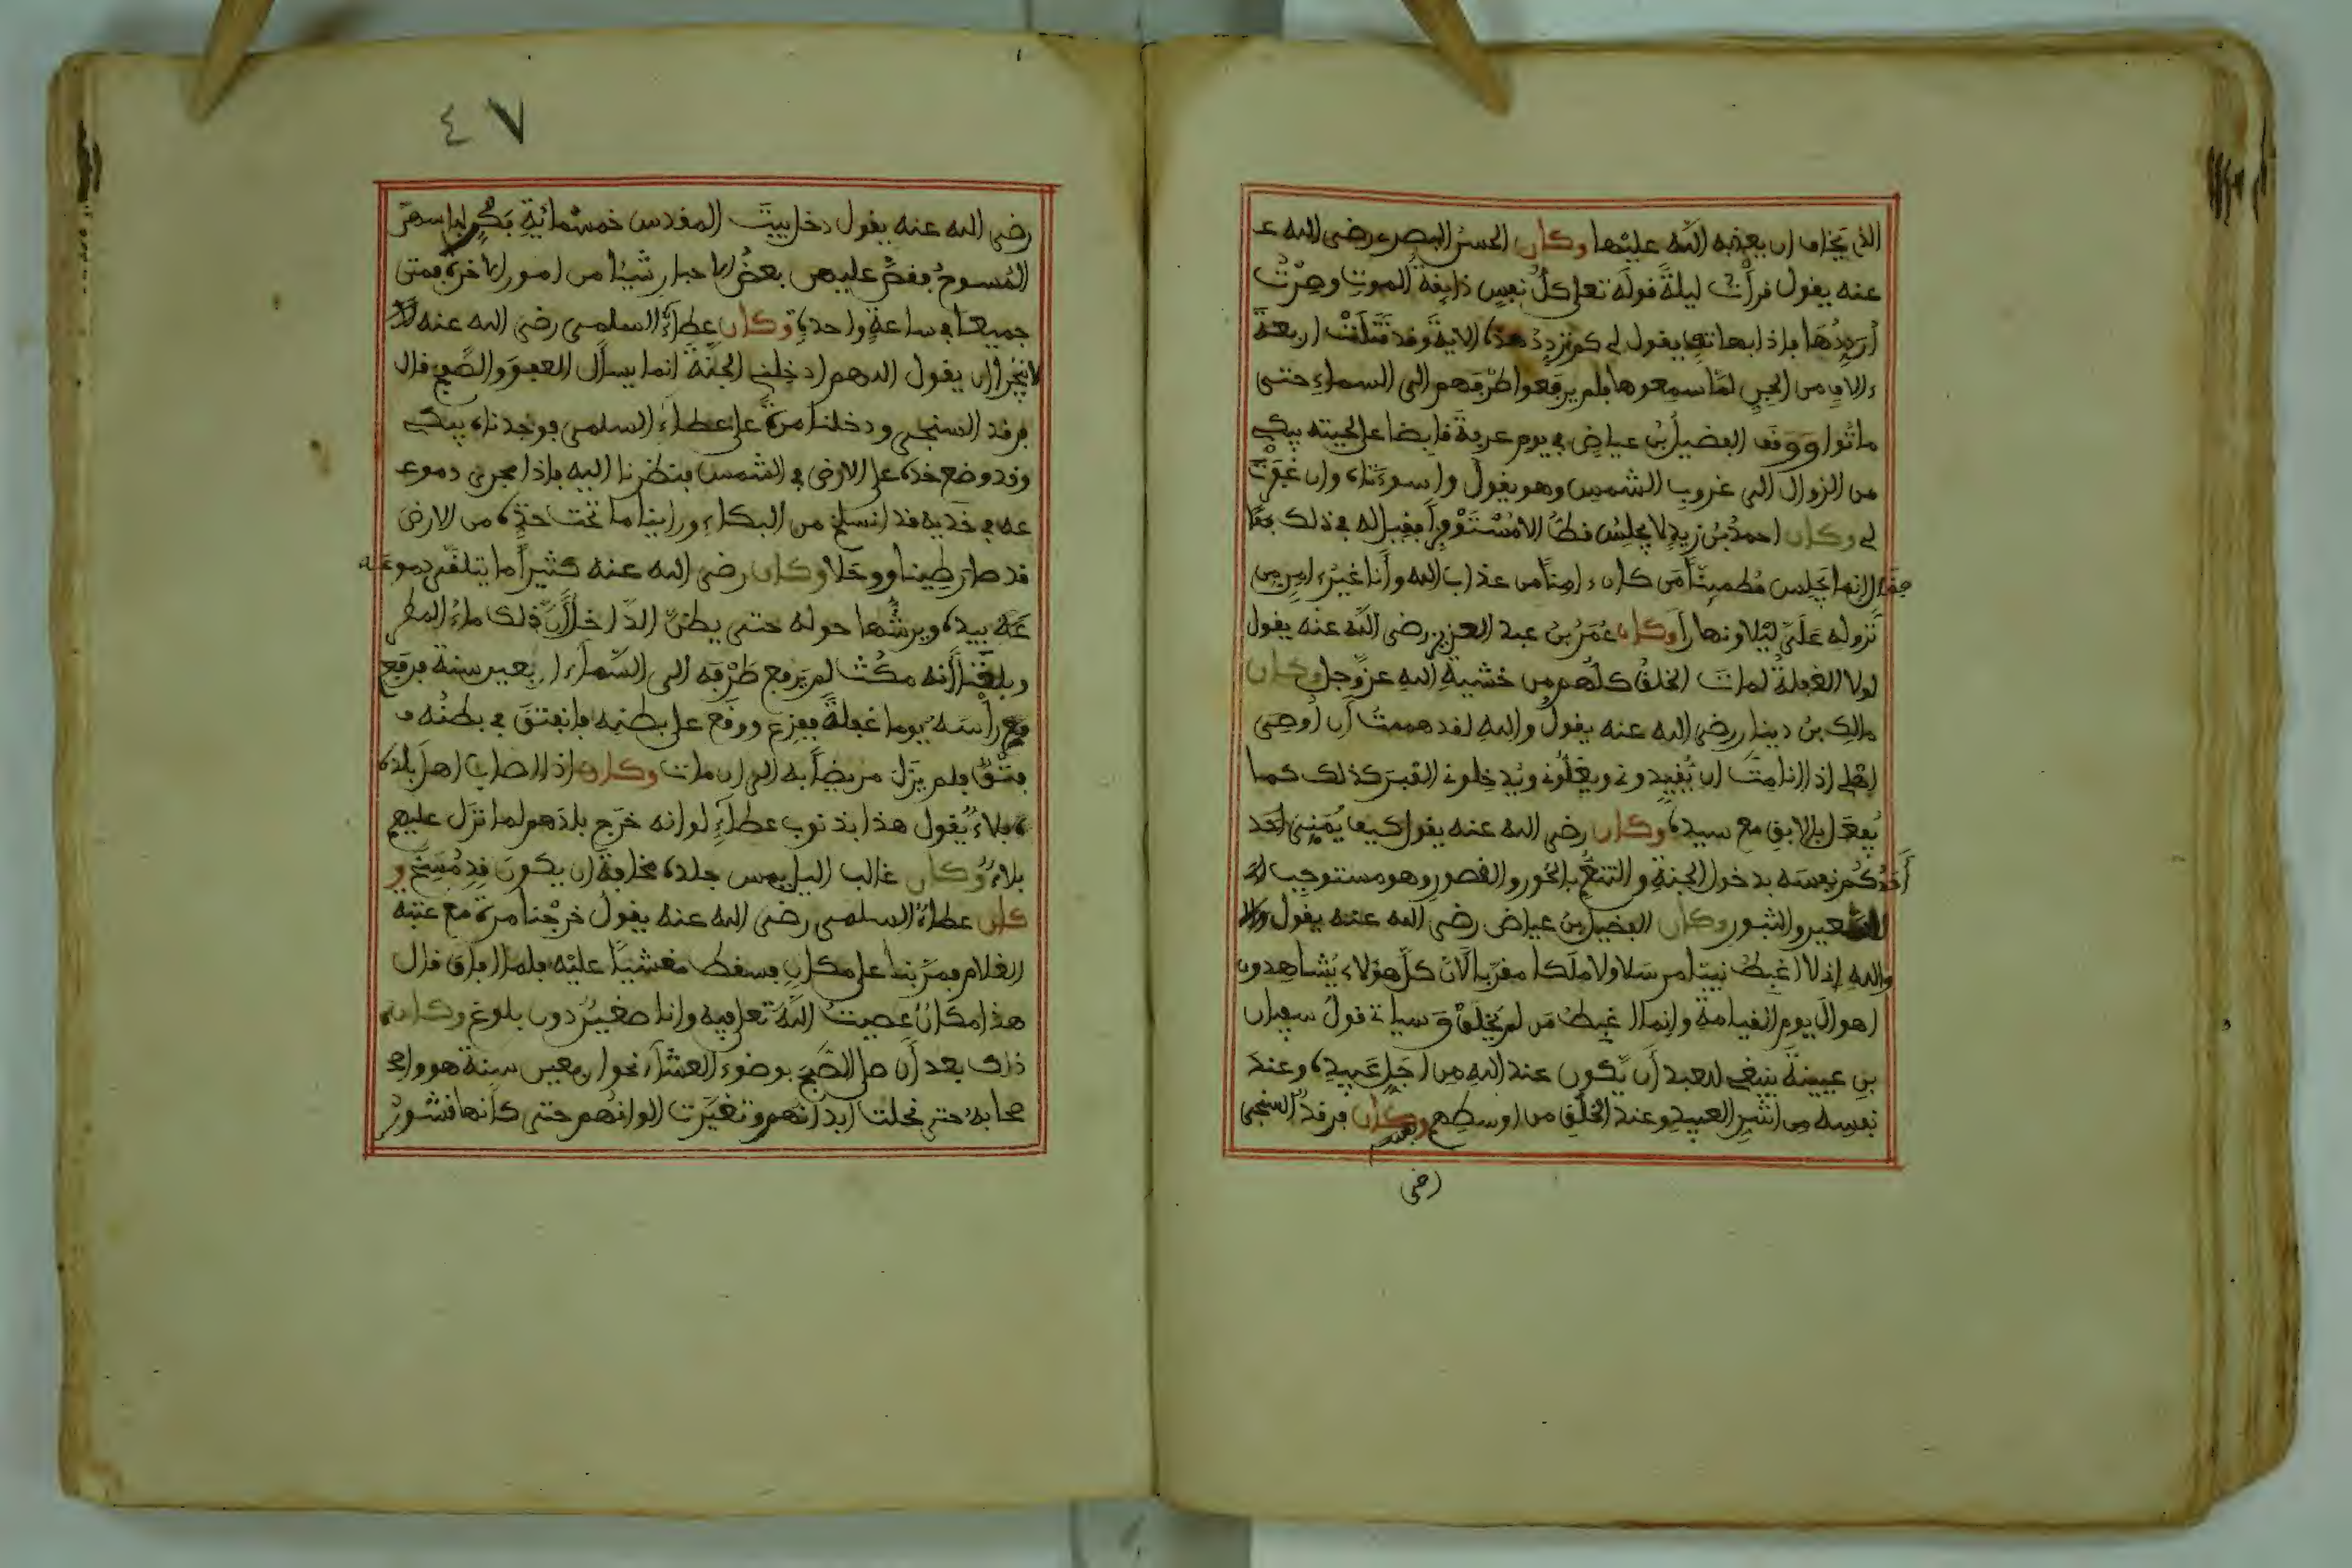 الذي يخاف ان يعذبه الله عليها وكان الحسن البصري رضي الله ع
عنه يقول قرأت ليلة قوله تعلى كل نفس ذايقة الموت وصرت
أرددها فاذا بهاتف يقول لي كم تردد هذه الاية وقد قتلت اربعة
ءالاف من الجن لما سمعوها فلم يرفعوا طرفهم الى السماء حتى
ماتوا ووقف الفضيل بن عياض في يوم عرفة قابضا على لحيته يبكي
من الزوال الى غروب الشمس وهو يقول واسوءتاه وان غفرت
لي وكان احمد بن زيد لا يجلس قط الا مستوفزا فقيل له في ذلك فقا
فقال انما يجلس مطمئنا من كان ءامنا من عذاب الله وأنا غير ءامن من
نزوله علي ليلا ونهارا وكان عمر بن عبد العزيز رضي الله عنه يقول
لولا الغفلة لمات الخلق كلهم من خشية الله عز وجل وكان
مالك بن دينار رضي الله عنه يقول والله لقد هممت أن أوصى
اهلي اذا انا مت ان يقيدوني ويغلوني ويدخلوني القبر كذلك كما
يفعل بالابق مع سيده وكان رضي الله عنه يقول كيف يمني احد
أحدكم نفسه بدخول الجنة والتنعم بالحور والقصور وهو مستوجب
السعير والثبور وكان الفضيل بن عياض رضي الله عنه يقول
والله اني لا اغبط نبيا مرسلا ولا ملكا مقربا لان كل هؤلاء يشاهدون
اهوال يوم القيامة وانما اغبط من لم يخلق وسياتي قول سفيان
بن عيينة ينبغي للعبد أن يكون عند الله من اجل عبيده وعند
نفسه من اشر العبيد وعند الخلق من اوسطهم وكان فرقد السنجي
رضي
٤٧
رضي الله عنه يقول دخل بيت المقدس خمسمائة بكر لباسهن
المسوح فقص عليهن بعض الاحبار شيئا من امور الاخرة فمتن
جميعا في ساعة واحدة وكان عطاء السلمي رضي الله عنه
لا يتجرأ ان يقول اللهم ادخلني الجنة انما يسأل العفو والصفح قال
فرقد السنجي ودخلنا مرة على عطاء السلمي فوجدناه يبكي
وقد وضع خده على الارض في الشمس فنظرنا اليه فاذا مجرى دموع
عه في خديه قد انسلخ من البكاء ورأينا ما تحت خده من الارض
قد صار طينا ووحلا وكان رضي الله عنه كثيرا ما يتلقى دموعه
عه بيده ويرشها حوله حتى يظن الداخل أن ذلك ماء المطر
وبلغنا أنه مكث لم يرفع طرفه الى السماء اربعين سنة فرفع
فع رأسه يوما غفلة ففزع ووقع على بطنه فانفتق في بطنه ف
فتق فلم يزل مريضا به الى ان مات وكان اذا اصاب اهل بلده
ه بلاء يقول هذا بذنوب عطاء لو انه خرج بلدهم لما نزل عليهم
بلاء وكان غالب الليل يمس جلده مخافة ان يكون قد مسخ و
كان عطاء السلمي رضي الله عنه يقول خرجنا مرة مع عتبة
الغلام فمر بنا على مكان فسقط مغشيا عليه فلما افاق قال
هذا مكان عصيت الله تعلى فيه وانا صغير دون بلوغ وكان
ذلك بعد أن صلى الصبح بوضوء العشاء نحو اربعين سنة هو واص
صحابه حتى نحلت ابدانهم وتغيرت الوانهم حتى كأنها قشور